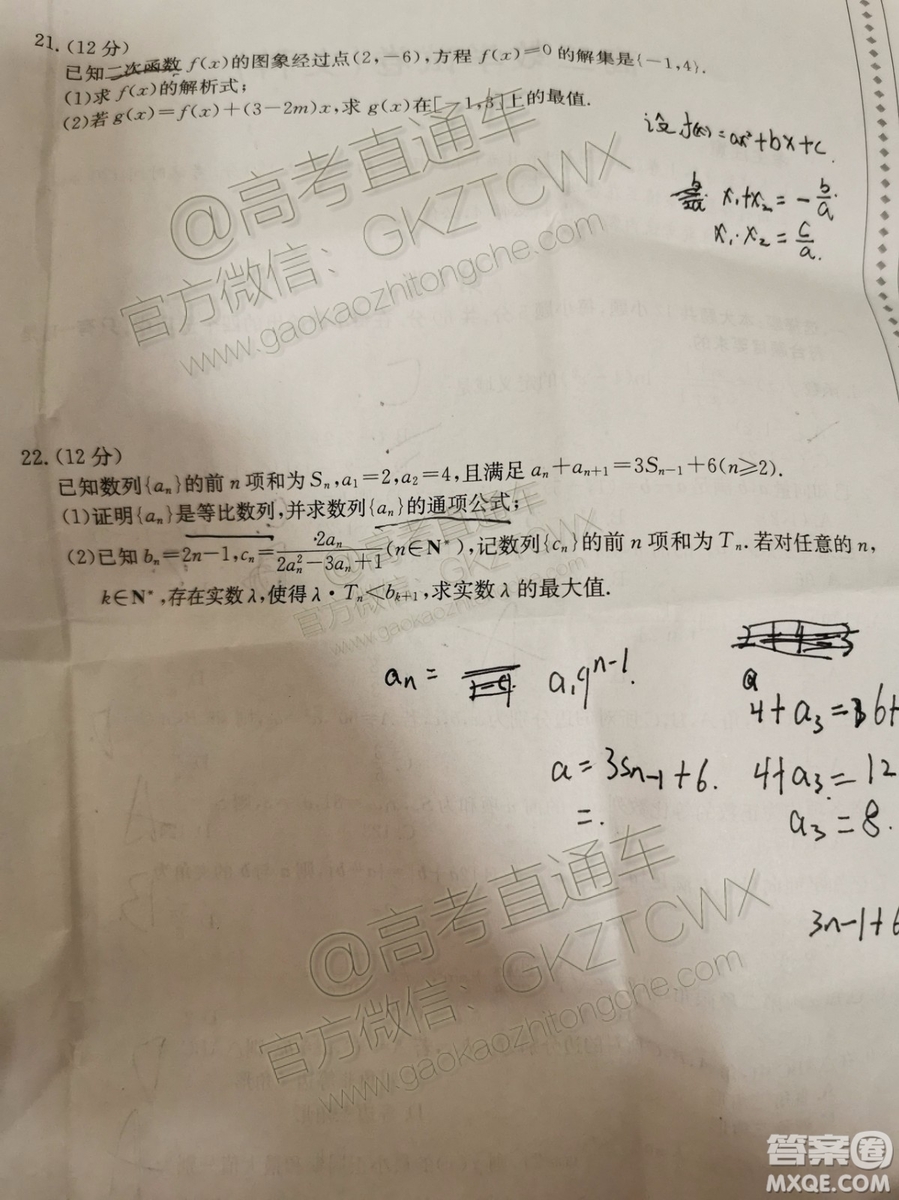 21.(12分)
已知二次函数 f(x)的图象经过点(2,-6),方程 f(x)=0 的解集是{-1,4}.
(1)求 f(x)的解析式;
(2)若 g(x)=f(x)+(3-2m)x,求 g(x)在[-1,3]上的最值.
设f(x)=ax²+bx+c.
x₁+x₂=-b/a.
x₁·x₂=c/a.
@高考直通车
官方微信：GKZTCWX
www.gaokaozhitongche.com
22.(12分)
已知数列{aₙ}的前 n 项和为 Sₙ,a₁=2,a₂=4,且满足 aₙ+aₙ₊₁=3Sₙ₋₁+6(n≥2).
(1)证明{aₙ}是等比数列,并求数列{aₙ}的通项公式;
(2)已知 bₙ=2n-1,cₙ=2aₙ/(2aₙ²-3aₙ+1)(n∈N*),记数列{cₙ}的前 n 项和为 Tₙ.若对任意的 n,
k∈N*,存在实数 λ,使得 λ·Tₙ<bₖ₊₁,求实数 λ 的最大值.
@高考直通车
官方微信：GKZTCWX
www.gaokaozhitongche.com
aₙ= a₁qⁿ⁻¹.
a
4+a₃=6+
a=3Sₙ₋₁+6. 4+a₃=12
=. a₃=8.
3n-1+6
@高考直通车
官方微信：GKZTCWX
www.gaokaozhitongche.com
答案圈
MXQE.COM